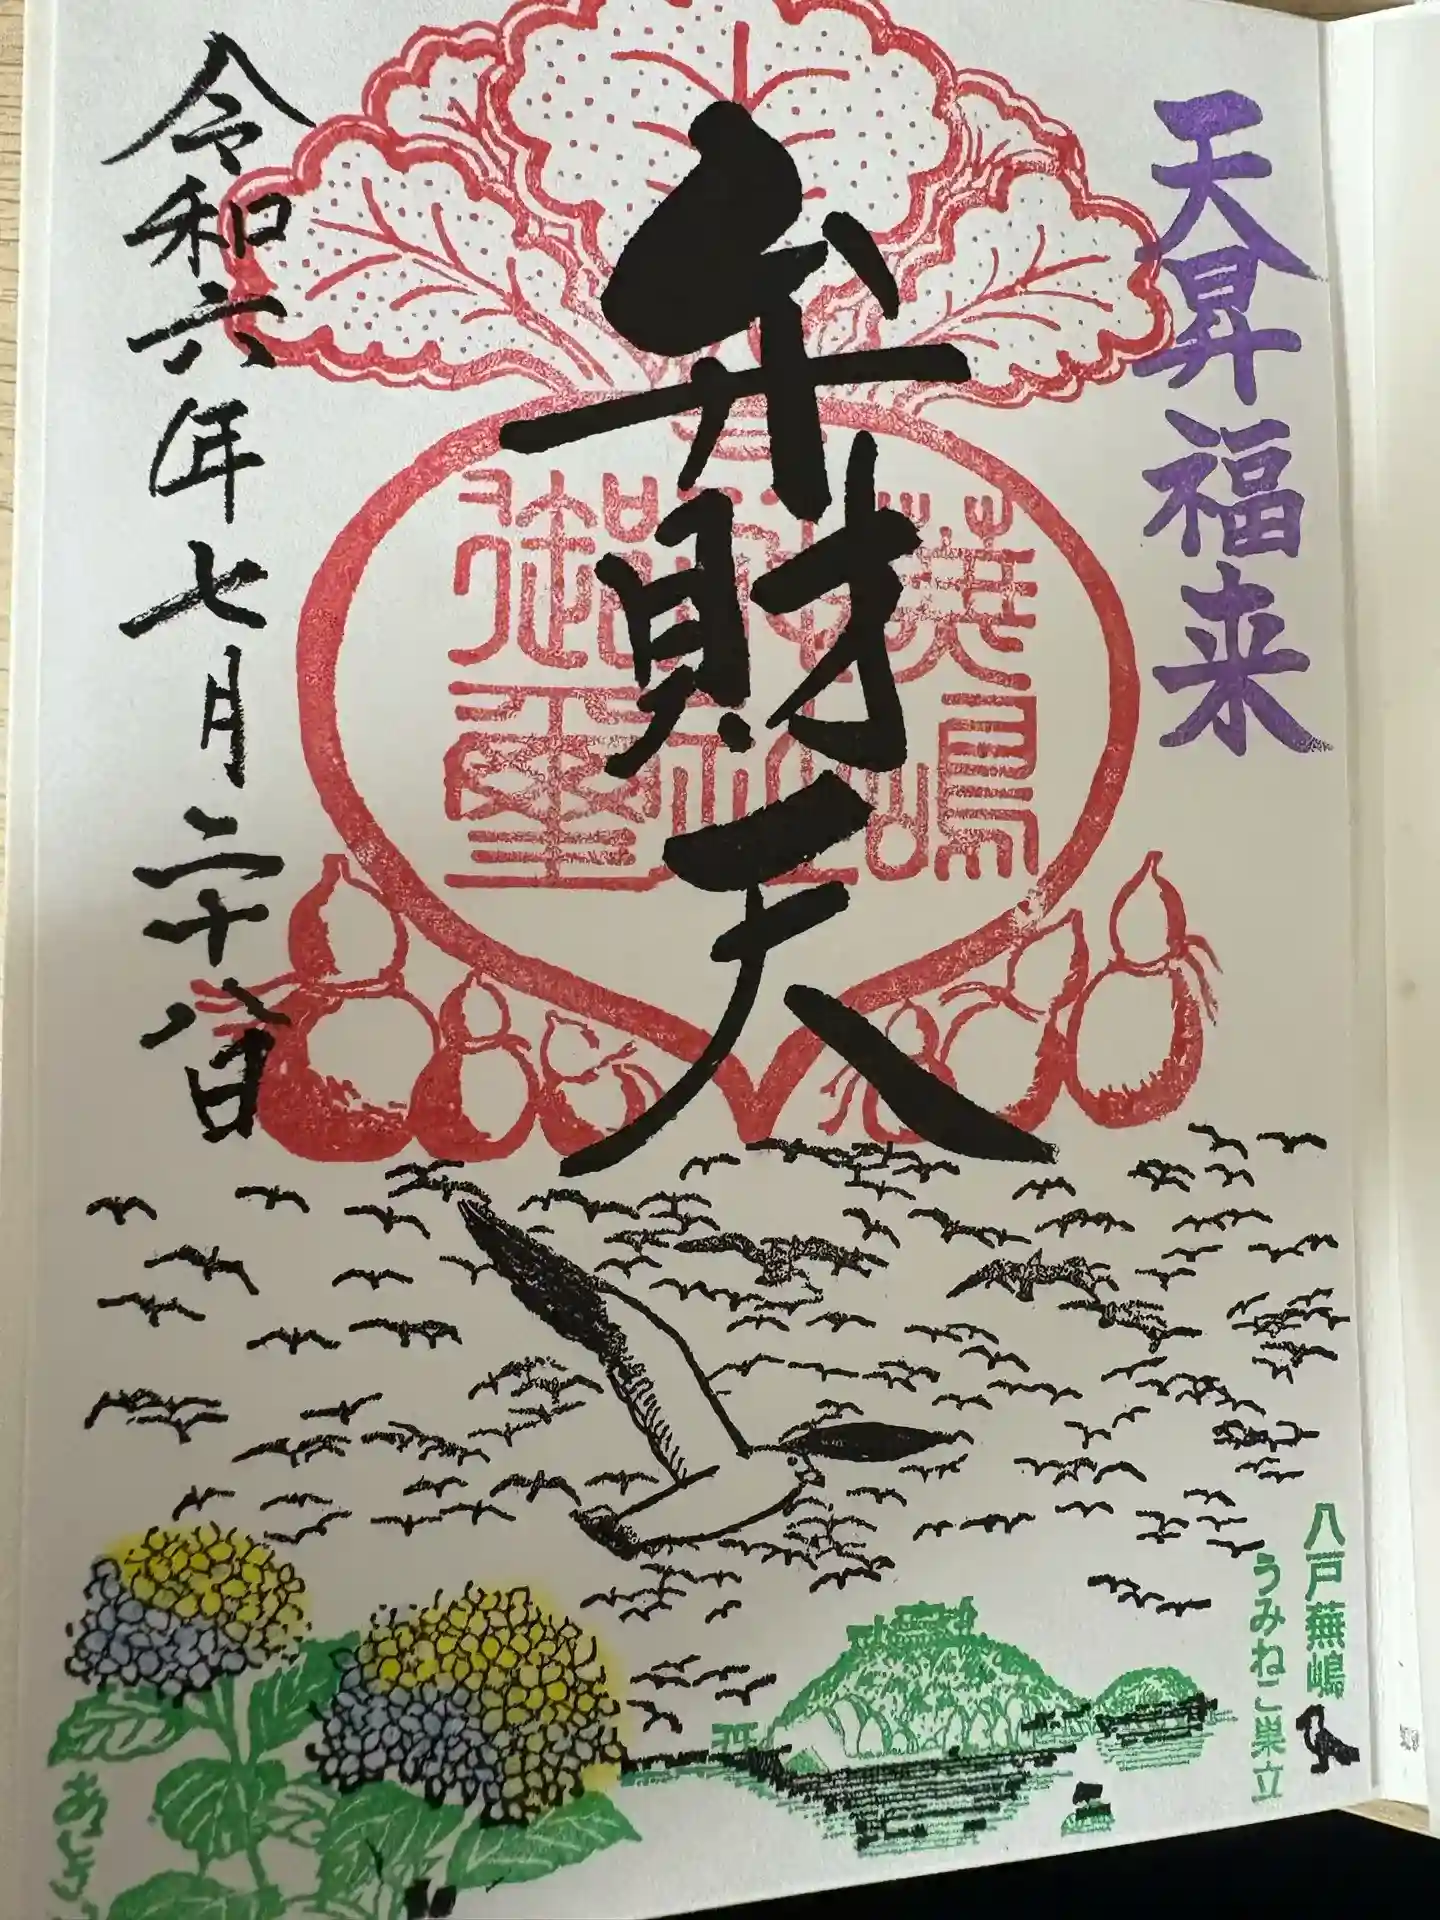 天昇福来
弁財天
蕪嶋神社御璽
令和六年七月二十八日
八戸蕪嶋
うみねこ巣立